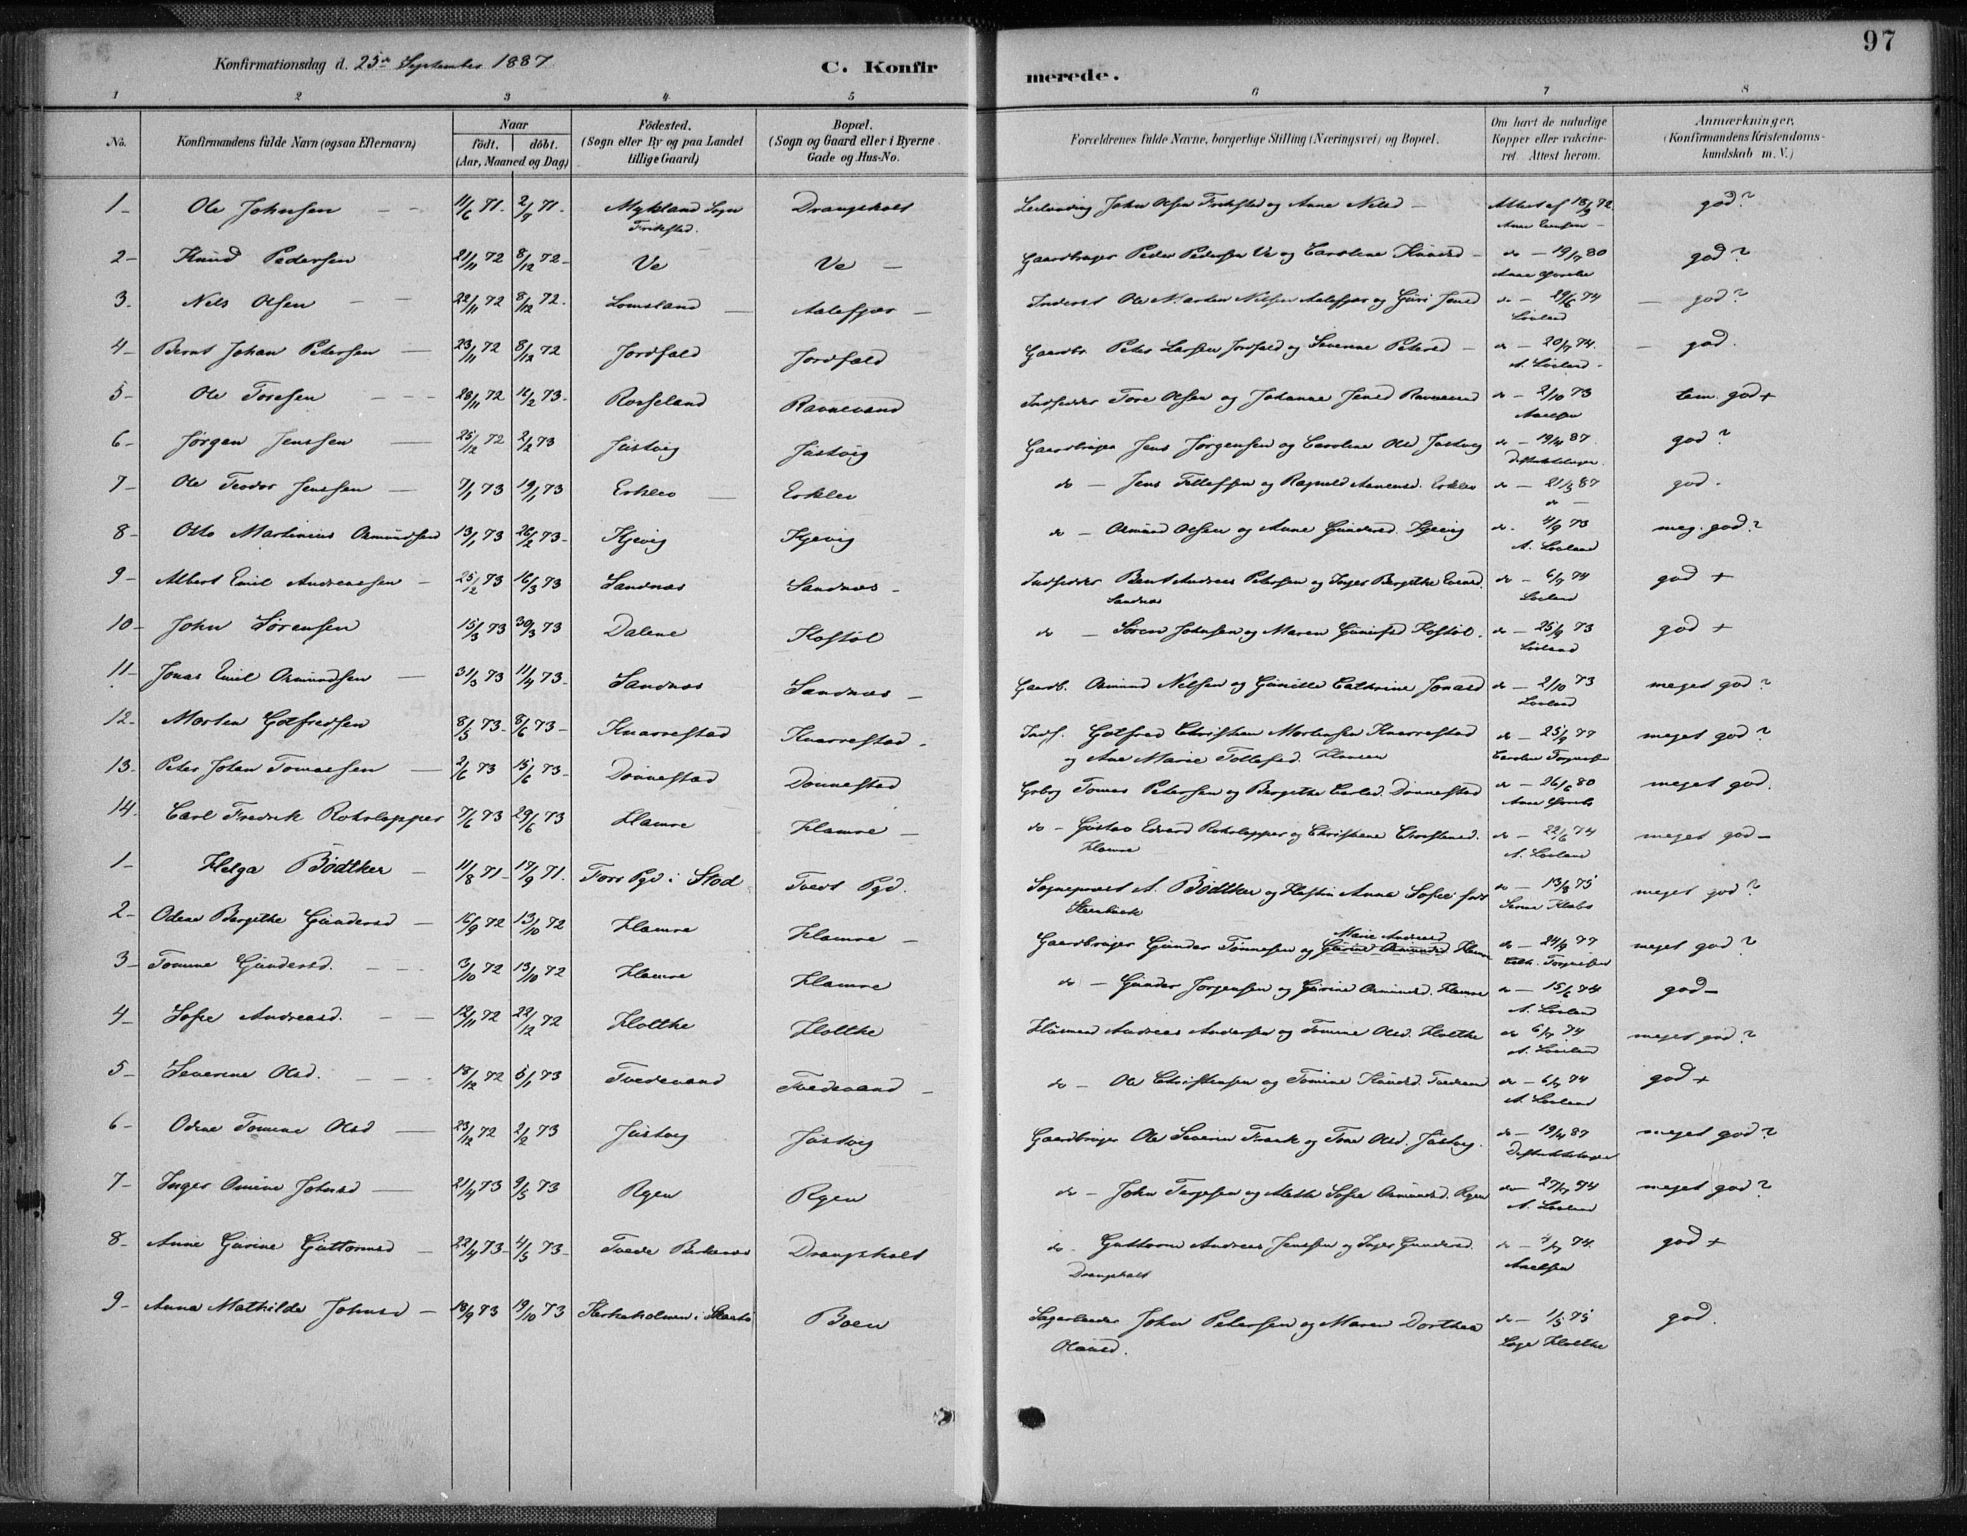 97
Konfirmationsdag d. 25de September 1887
C. Konfirmerede.
1 2 3 4 5 6 7 8
No. Konfirmandens fulde Navn (ogsaa Efternavn) Naar födt. döbt. (Aar, Maaned og Dag) Födested. (Sogn eller By og paa Landet tillige Gaard) Bopæl. (Sogn og Gaard eller i Byerne Gade og Hus-No. Forældrenes fulde Navne, borgerlige Stilling (Næringsvei) og Bopæl. Om havt de naturlige Kopper eller vakcineret. Attest herom. Anmærkninger, (Konfirmandens Kristendomskundskab m. V.)
1- Ole Johnsen 11/6 71. 2/7 71. Mykland Sogn Drangsholt John Olsen og Anne Nilsd - Attest af 18/9 72 god?
2- Knud Pedersen 21/11 72 8/12 72- Ve Ve - Gaardbruger Peder Pedersen Ve og Caroline Knudsd - do - 19/7 80 god?
3. Nels Olsen 22/11 72 8/12 72. Lomsland Aalefjær - Inderst Ole Martin Nilsen Aalefjær og Guri Jensd do - 29/6 74 Lövland god?
4- Bernt Johan Petersen 23/11 72 8/12 72 Jordfald Jordfald Gaardbr. Peter Larsen Jordfald og Severine Petersd - do - 20/7 74. A. Lövland - god.
5- Ole Toresen 28/11 72 16/2 73. Rosseland Ravnevand Indsidder Tore Olsen og Johanne Jensd Ravnevand do - 2/10 73 tem. god +
6- Jörgen Jenssen 25/12 72 2/2 73 Justvig Justvig Gaardbruger Jens Jörgensen og Caroline Olsd Justvig do - 19/4 87. Distriktslægen. god?
7- Ole Teodor Jenssen 7/1 73 19/1 73 Erklev Erklev do - Jens Tellefsen og Ragnild Aanensd. Erklev do - 21/3 87 do - god.
8- Otto Martinius Osmundsen 13/1 73 26/2 73- Kjevig Kjevig do - Osmund Olsen og Anne Gundersd. Kjevig do. 4/9 73 A. Lövland meg. god?
9- Albert Emil Andreassen - 25/2 73 16/3 73 Sandnæs Sandnæs - Indsidder Bent Andreas Petersen og Inger Bergithe Evensd. Sandnæs do - 6/7 74 Lövland god +
10- John Sørensen 15/3 73 30/3 73 Dalene Kostöl do - Sören Johnsen og Maren Kostöl. do - 25/9 73 Lövland god +
11- Jonas Emil Osmundsen 31/3 73 11/4 73- Sandnæs Sandnæs - Gaardb. Osmund Nilsen og Gunille Cathrine Jonasd do - 2/10 73 Lövland meget god?
12. Morten Gotfredsen 8/5 73- 8/6 73- Knarrestad Knarrestad - Inds. Gotfred Christian Mortensen Knarrestad og Ane Marie Tollefsd. do - 25/9 77 meget god?
13. Peter Johan Tomassen 2/6 73 15/6 73- Dönnestad Dönnestad Grbrg Tomas Petersen og Bergithe Carlsd. Dönnestad do - 26/6 80 meget god.
14. Carl Fredrik Rohrlapper 7/6 73 29/6 73 Hamre Hamre - do - Gustav Edvard Rohrlapper og Christiane Christensd. Hamre do - 22/6 74 A. Lövland meget god -
1- Helga Bödtker 11/8 71- 17/9 71. Foss Pgd i Stod Tvedt Pgd. Sogneprest A. Bödtker og Hustru Anna Sofie född Steenbuch do - 13/8 75 meget god?
2- Odine Bergithe Gundersd - 16/9 72 13/10 72 Hamre Hamre - Gaardbruger Gunder Tönnesen og Marie Andreasd Gurine Osmundsd Hamre do - 24/9 77 meget god?
3- Tomine Gundersd. 3/10 72 13/10 72 Hamre Hamre do - Gunder Jörgensen og Gurine Osmundsd. Hamre do - 15/6 74 A. Lövland god -
4- Sofie Andreasd. 12/11 72 22/12 72 Holthe Holthe Husmand Andreas Andersen og Tomine Olsd. Holthe do 6/7 74 A. Lövland meget god?
5- Severine Olsd. 18/12 72 5/1 73 Tvedevand Tvedevand - do - Ole Christensen og Tomine Knudsd. do - 6/7 74 A. Lövland god +
6- Odine Tomine Olsd 23/12 72 2/2 73 Justvig Justvig Gaardbruger Ole Severin Frank og Tone Olsd. Justvig. do - 19/4 87 Distriktslægen meget god?
7- Inger Omine Johnsd 21/4 73 9/5 73 Rygen Rygen do - John Terjesen og Mette Sofie Osmundsd. Rygen do - 27/7 74 A. Lövland meget god?
8- Anne Gurine Guttormsd - 22/4 73- 4/5 73- Tvede Birkenæs Drangsholt do - Guttorm Andreas Jenssen og Inger Gundersd. Drangsholt do - 74. god +
9- Anna Mathilde Johnsd - 18/9 73 19/10 73 Boen John Petersen og Maren Dorthea do - 1/5 75 Holthe god.